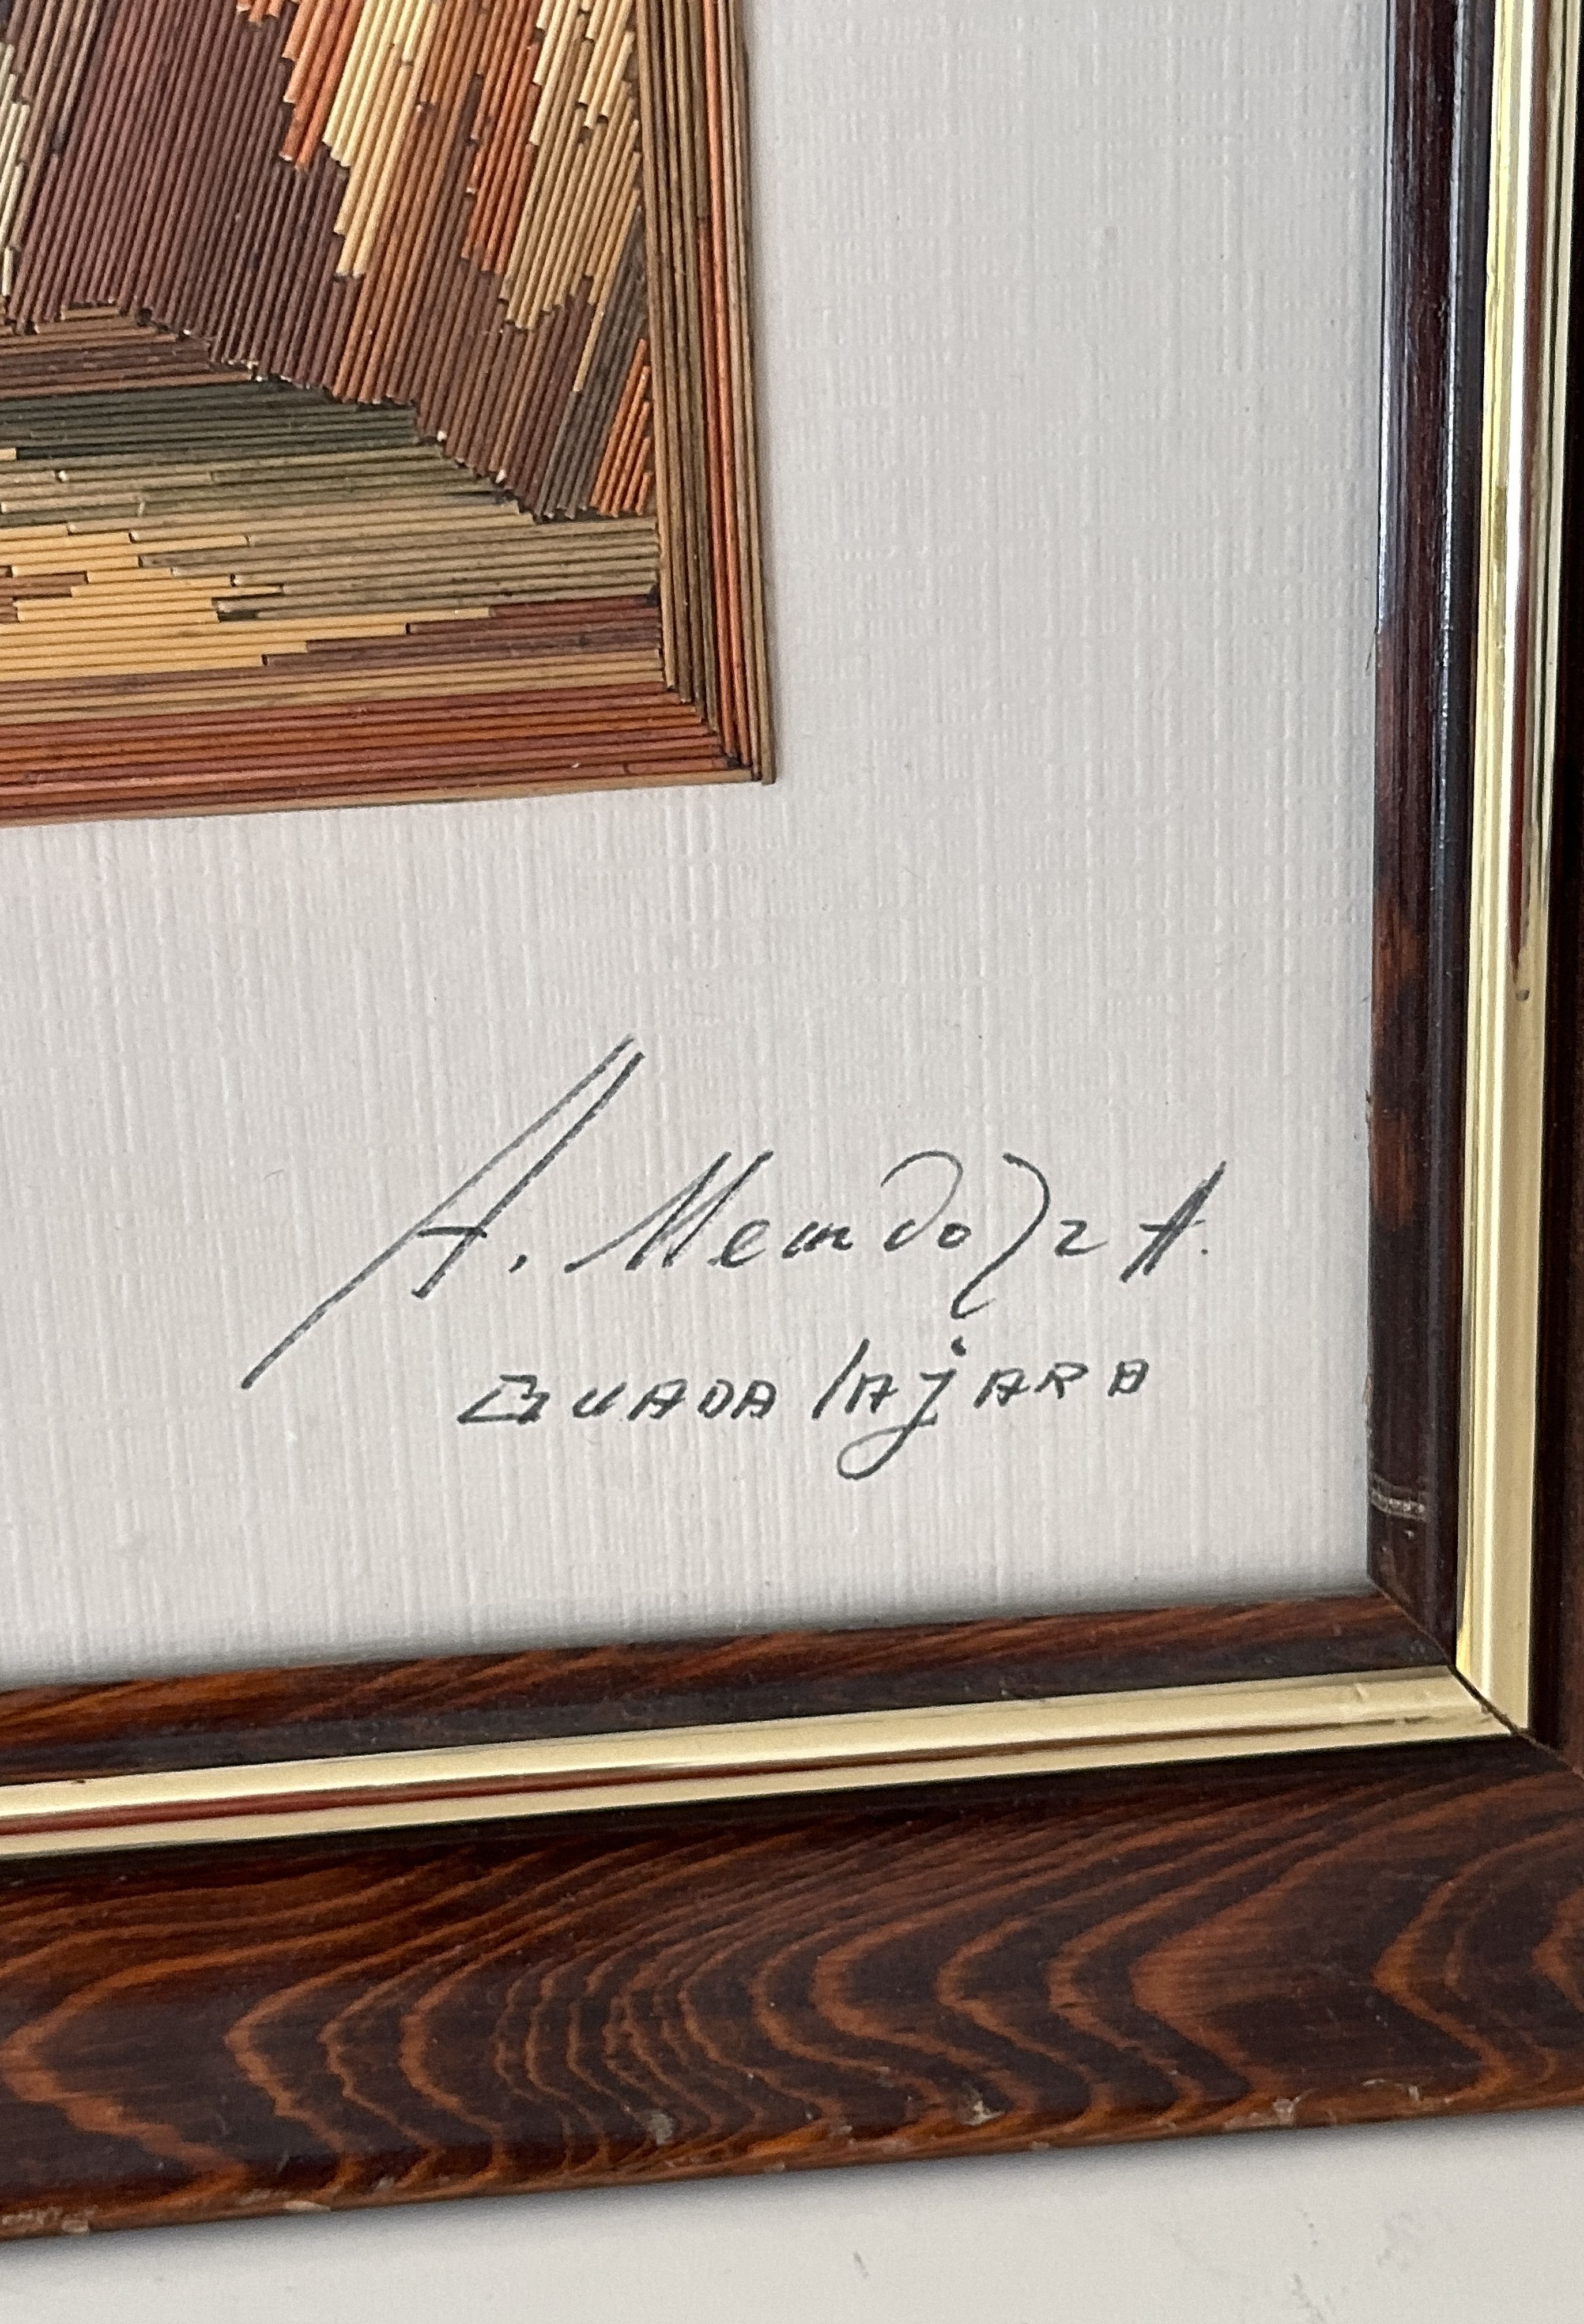 A. MendozA.
GUADAlAjARA